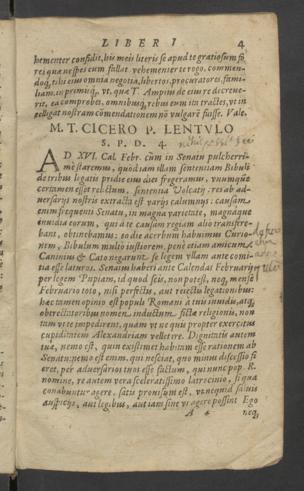 LIBER I. 4
hementer confidit, his meis literis se apud te gratiosum fo
re: quæ ne spes eum fallat vehementer te rogo. commen-
doq; tibi eius omnia negotia, libertos, procuratores, fami-
liam. in primisq; vt, quæ T. Ampius de eius re decreue-
rit, ea comprobes, omnibusq; rebus eum ita tractes, vt in
telligat nostram cōmendationem nō vulgarē fuisse. Vale.
M. T. CICERO P. LENTVLO
S. P. D. 4.
AD XVI. Cal. Febr. cùm in Senatu pulcherri-
mè staremus, quòd iam illam sententiam Bibuli
de tribus legatis pridie eius diei fregeramus, vnumque
certamen esset relictum, sententia Volcatij. res ab ad-
uersarijs nostris extracta est varijs calumnijs: causam
enim frequenti Senatu, in magna varietate, magnaque
inuidia eorum, qui à te causam regiam aliò transfere-
bant, obtinebamus: eo die acerbum habuimus Curio-
nem, Bibulum multò iustiorem, penè etiam amicum.
Caninius & Cato negarunt se legem vllam ante comi-
tia esse laturos. Senatus haberi ante Calendas Februarij
per legem Pupiam, id quod scis, non potest, neq; mense
Februario toto, nisi perfectis, aut reiectis legationibus.
hæc tamen opinio est populi Romani à tuis inuidis, atq;
obtrectatoribus nomen inductum fictæ religionis, non
tam vt te impedirent, quàm vt ne quis propter exercitus
cupiditatem Alexandriam vellet ire. Dignitatis autem
tuæ, nemo est, quin existimet habitam esse rationem ab
Senatu: nemo est enim, qui nesciat, quo minus discessio fi
eret, per aduersarios tuos esse factum, qui nunc pop. R.
nomine, re autem vera sceleratissimo latrocinio, si qua
conabuntur agere, satis prouisum est, vt ne quid saluis
auspicijs, aut legibus, aut iam sine vi agere possint. Ego
A 4 neq,